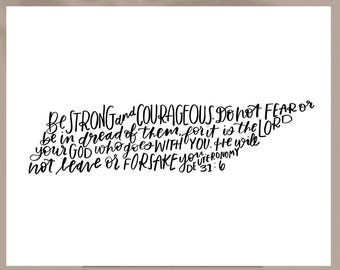 Be STRONG and COURAGEOUS. Do not FEAR or
be in dread of them, for it is the LORD
your GOD who goes WITH YOU. He will
not leave or FORSAKE you.
DEUTERONOMY
31:6